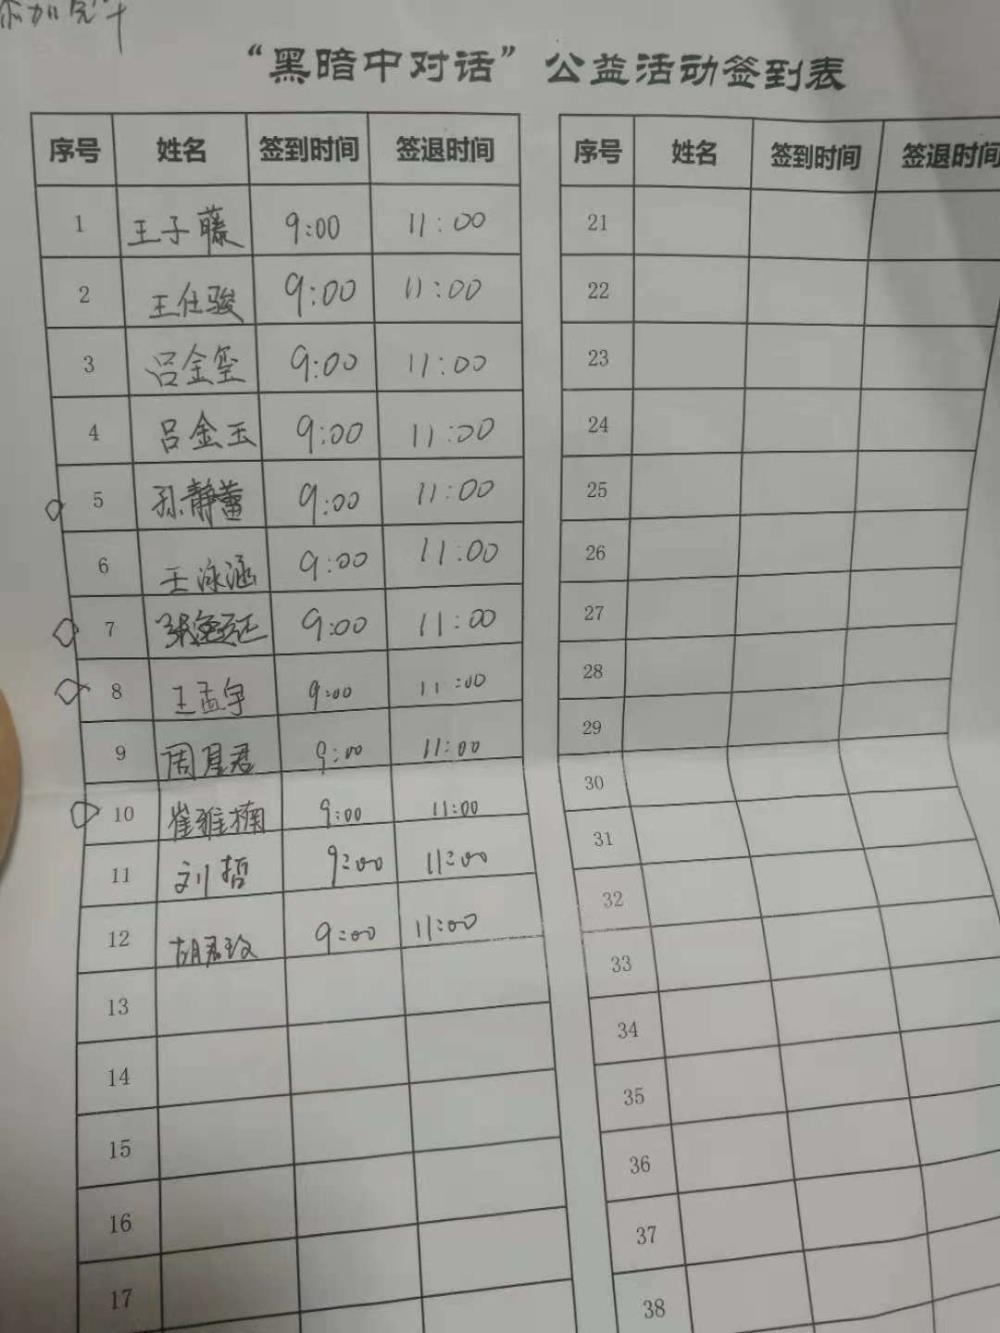 “黑暗中对话”公益活动签到表
序号 姓名 签到时间 签退时间 序号 姓名 签到时间 签退时间
1 王子藤 9:00 11:00 21
2 王仕骏 9:00 11:00 22
3 吕金玺 9:00 11:00 23
4 吕金玉 9:00 11:00 24
5 孙静蕾 9:00 11:00 25
6 王泳涵 9:00 11:00 26
7 9:00 11:00 27
8 王孟宇 9:00 11:00 28
9 周星君 9:00 11:00 29
10 崔雅楠 9:00 11:00 30
11 刘哲 9:00 11:00 31
12 胡君玫 9:00 11:00 32
13 33
14 34
15 35
16 36
17 37
38